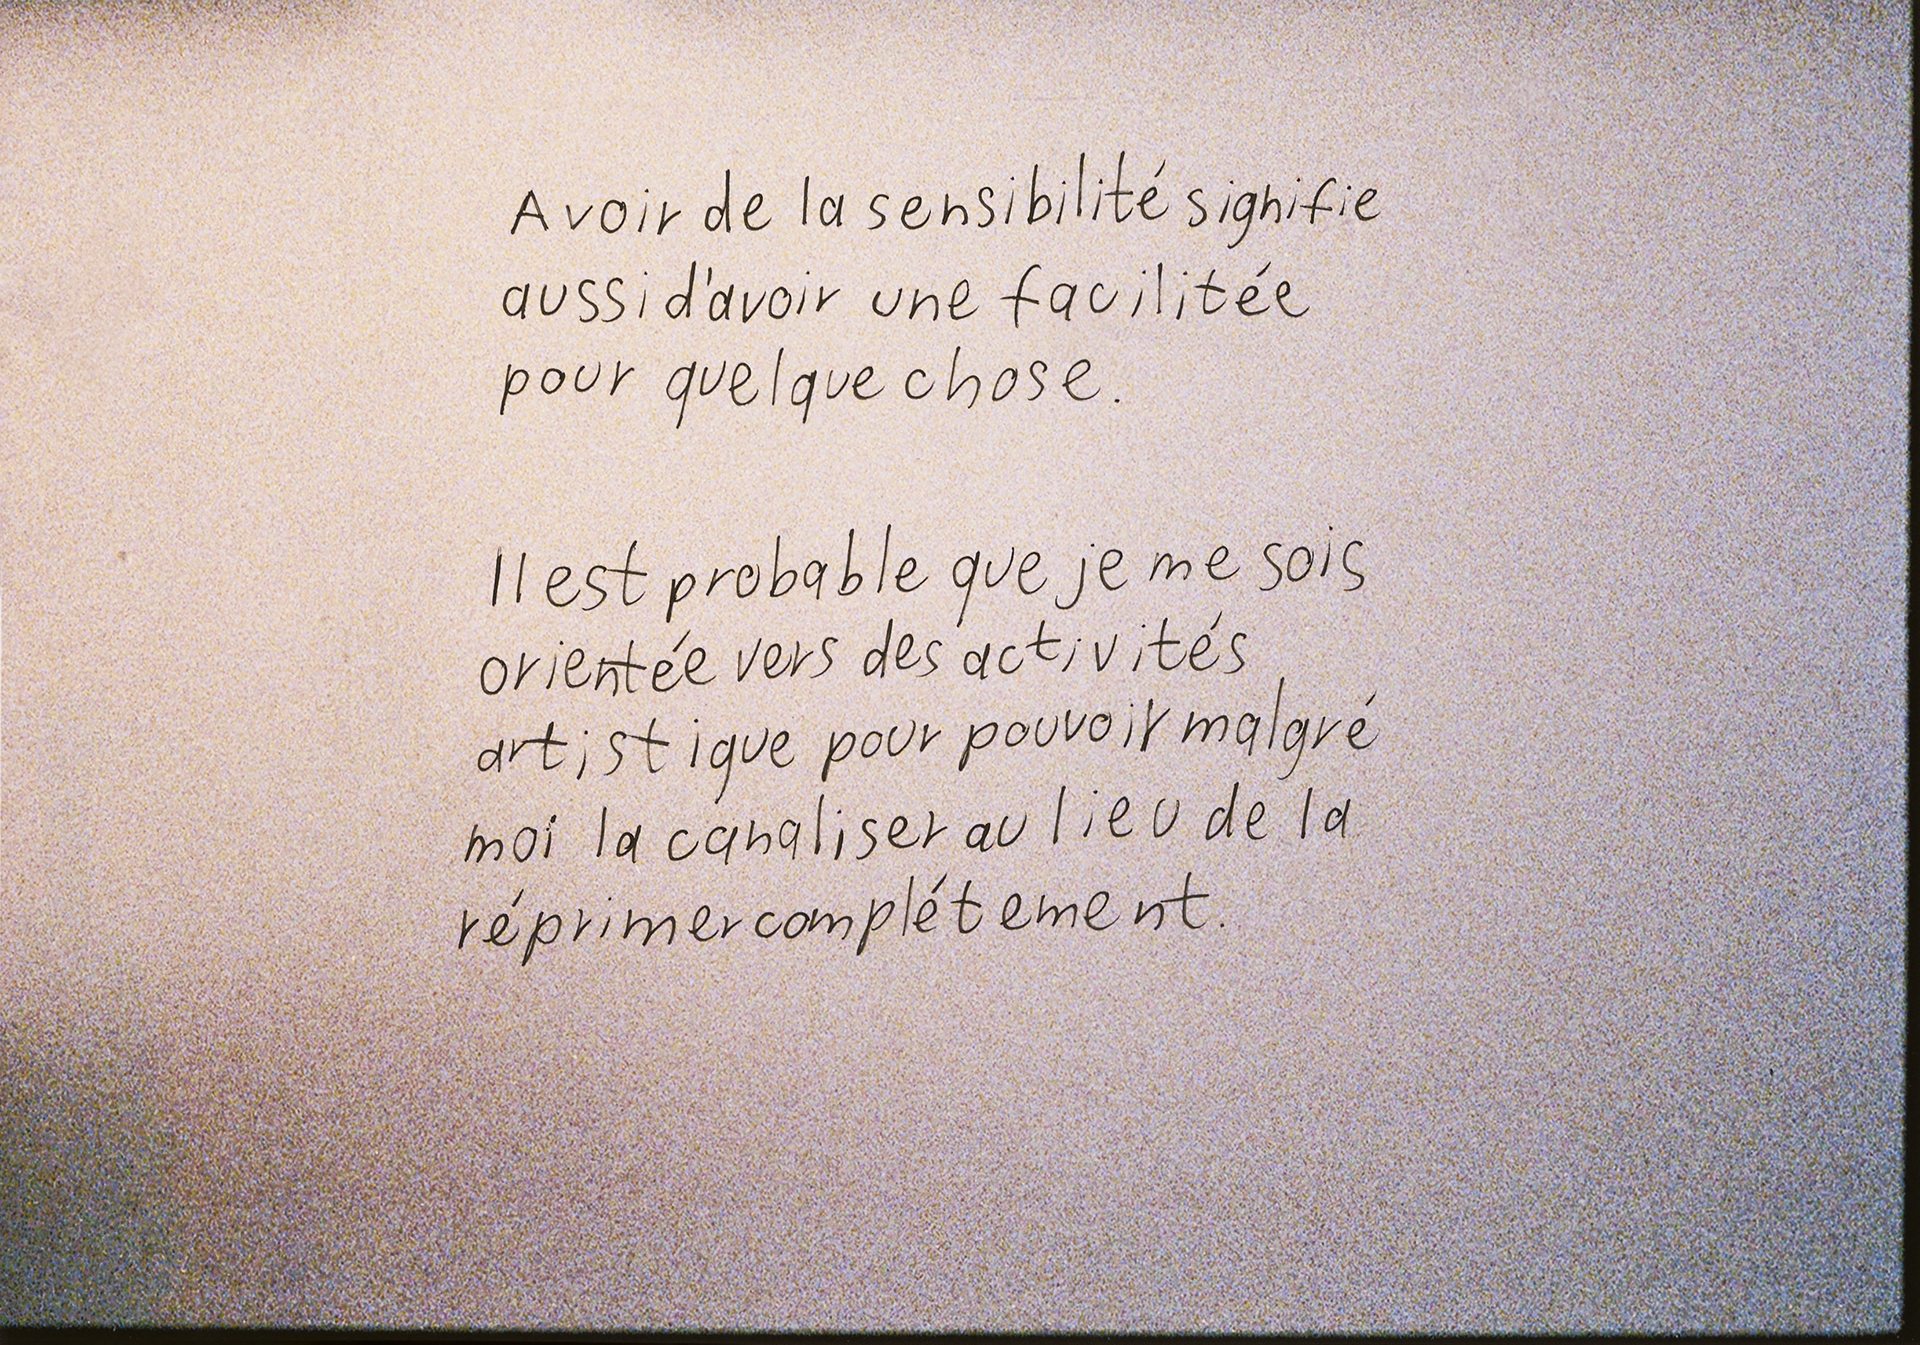 Avoir de la sensibilité signifie
aussi d'avoir une facilitée
pour quelque chose.
Il est probable que je me sois
orientée vers des activités
artistique pour pouvoir malgré
moi la canaliser au lieu de la
réprimer complétement.